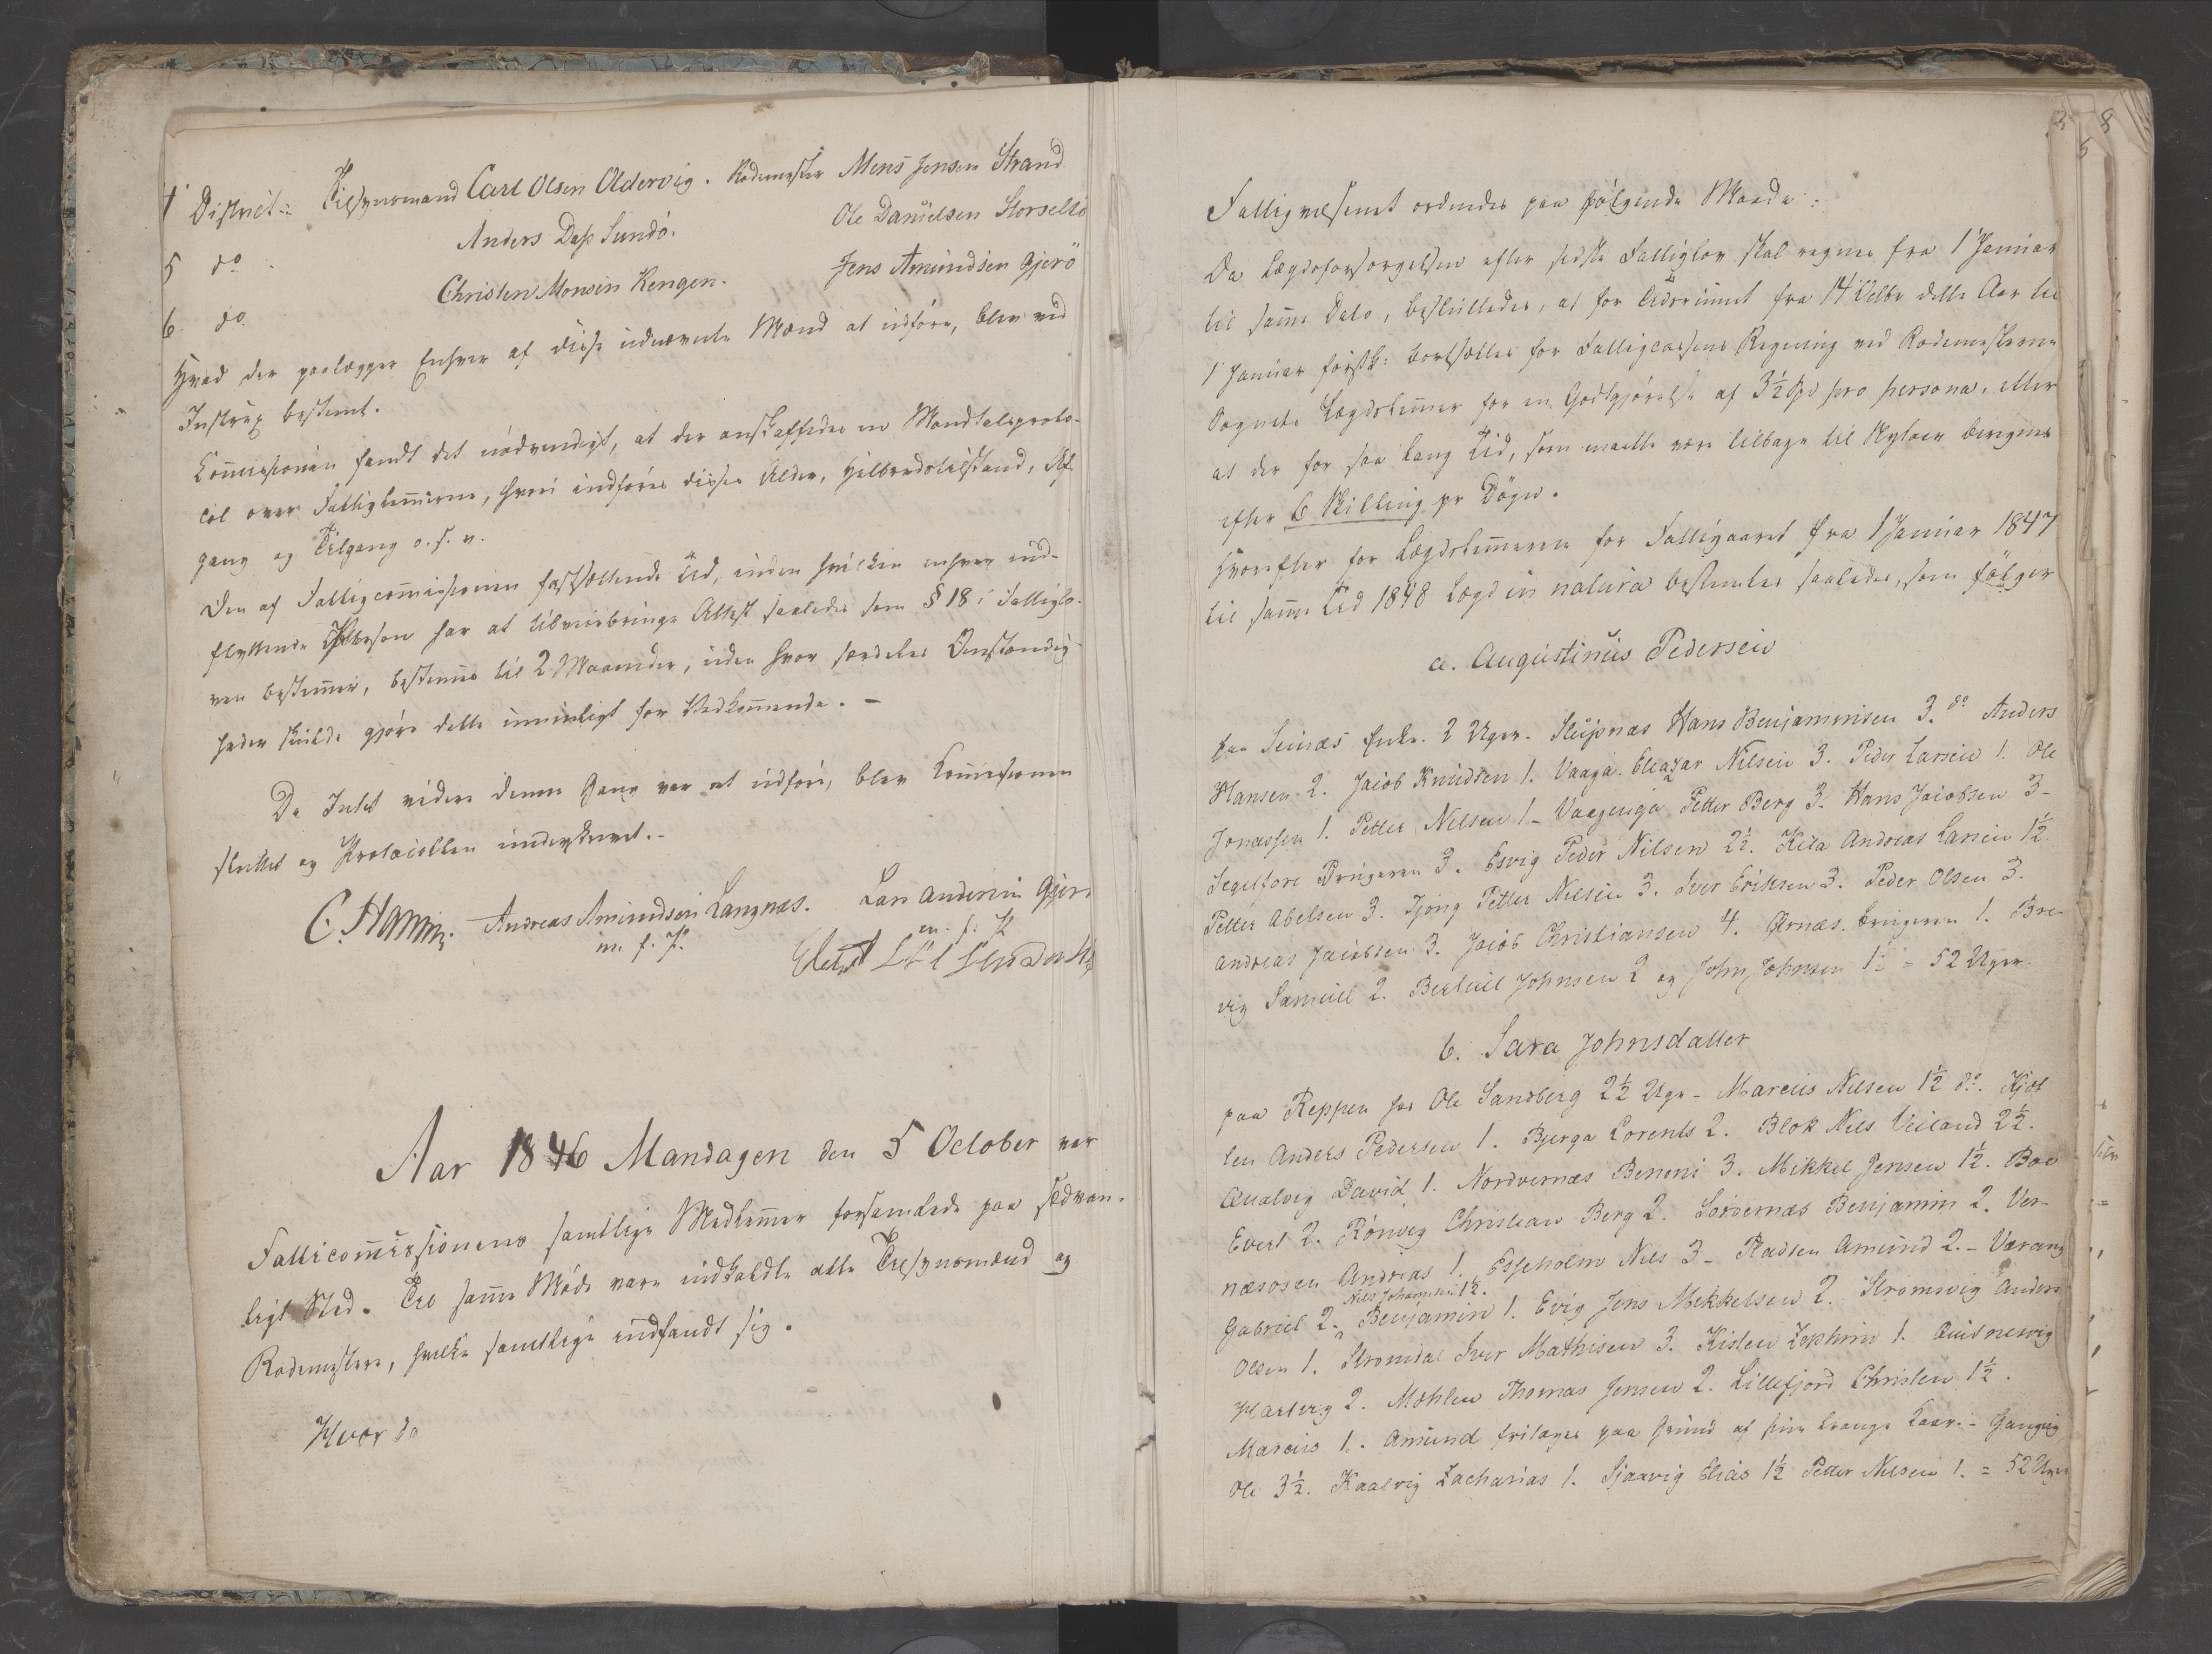 4 District: Tilsynsmand Carl Olsen Oldervig. Rodemester Mons Jensen Strand
5 do Anders Dass Sundö. Ole Danielsen Storselsö
6 do Christen Monsen Kengen. Jens Amundsen Gjerö
Hvad der paalægger Enhver af disse udnævnte Mænd at udføre, blev ved
Instrux bestemt.
Commissionen fandt det nødvendigt, at der anskaffedes en Mandtalsproto-
col over Fattiglemmerne, hvori indføres disses Alder, Helbredstilstand, Af-
gang og Tilgang o. s. v.
Den af Fattigcommissionen fastsættende Tid, inden hvilken enhver ind-
flyttende Person har at tilveiebringe Attest saaledes som § 18 i Fattiglo-
ven bestemmer, bestemmes til 2 Maaneder, uden hvor særdeles Omstændig-
heder skulde gjøre dette umuligt for Vedkommende. -
Da Intet videre denne Gang var at udføre, blev Commissionen
sluttet og Protocollen underskrevet. -
C. Hamm. Andreas Amundsen Langnæs. Lars Andersen Gjerö
m. f. P. m. f. P.
Aar 1846 Mandagen den 5 October var
Fatticommissionens samtlige Medlemmer forsamlede paa sædvan-
ligt Sted. Til samme Møde vare indkaldte alle Tilsynsmænd og
Rodemestere, hvilke samtlige indfandt sig.
Hvor da
8
5
Fattigvæsenet ordnedes paa følgende Maade:
Da Lægdsforsørgelsen efter sidste Fattiglov skal regnes fra 1 Januar
til samme Dato, besluttedes, at for Tidsrummet fra 14 Octbr dette Aar til
1 Januar førstk: bortsættes for Fattigcassens Regning ved Rodemesterne
Sognets Lægdslemmer for en Godtgjørelse af 3½ Spd pro persona, eller
at der for saa lang Tid, som maatte være tilbage til Nytaar beregnes
efter 6 Skilling pr Døgn.
Hvorefter for Lægdslemmerne for Fattigaaret fra 1 Januar 1847
til samme Tid 1848 Lægd in natura bestemtes saaledes, som følger
a. Augustinus Pedersen
paa Selnæs Enke. 2 Uger. Sleipnæs Hans Benjaminsen 3. do Anders
Hansen 2. Jacob Knudsen 1. Vaaga. Eleazar Nilsen 3. Peder Larsen 1. Ole
Jonassen 1. Petter Nilsen 1 - Vaagenga Petter Berg 3. Hans Jacobsen 3 -
Segelfore Brugeren 3. Esvig Peder Nilsen 2½. Kila Andreas Larsen 1½
Petter Abelsen 3. Tjong Petter Nilsen 3. Iver Eriksen 3. Peder Olsen 3.
Andreas Jacobsen 3. Jacob Christiansen 4. Ørnæs. Brugeren 1. Bre-
vig Samuel 2. Bertuel Johnsen 2 og John Johnsen 1½ = 52 Uger.
b. Sara Johnsdatter
paa Reppen hos Ole Sandberg 2½ Uge - Marcus Nilsen 1½ do. Kjel
len Anders Pedersen 1. Bjerga Lorents 2. Blok Nils Veiland 2½.
Qvalvig David 1. Nordvernæs Benoni 3. Mikkel Jensen 1½. Boe
Evert 2. Rönvig Christian Berg 2. Sörvernæs Benjamin 2. Ver-
næsosen Andreas 1. Esseholm Nils 3 - Radsen Amund 2. - Værang
Nils Johannesen 1½.
Gabriel 2. Benjamin 1. Evig Jens Mikkelsen 2. Strömsvig Anders
Olsen 1. Stromdal Iver Mathisen 3. Kisten Zephrin 1.
Hartvig 2. Möhlen Thomas Jensen 2. Lillefjord Christen 1½.
Marcus 1. Amund fritages paa Grund af sine trange Kaar. - Gangvig
Ole 3½. Kaalvig Zacharias 1. Sjaavig Elias 1½ Petter Nilsen 1. = 52 Uger